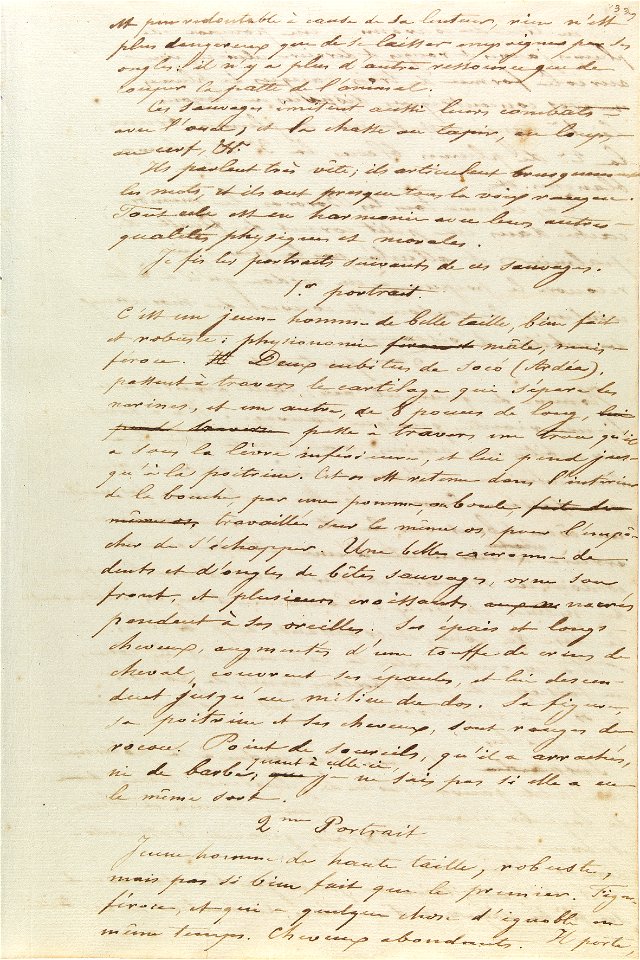 est peu redoutable à cause de sa lenteur, rien n'est
plus dangereux que de se laisser empoigner par ses
ongles: il n'y a plus d'autre ressource que de
couper la patte de l'animal.
Ces sauvages imitent aussi leurs combats
avec l'once, et la chasse au tapir, au loup,
au cerf, &c.
Ils parlent très vite; ils articulent brusquement
les mots, et ils ont presque tous la voix rauque.
Tout cela est en harmonie avec leurs autres
qualités physiques et morales.
Je fis les portraits suivants de ces sauvages.
1er portrait.
C'est un jeune homme de belle taille, bien fait
et robuste; physionomie mâle, mais
féroce. Deux cubitus de Soco (Ardéa),
passent à travers le cartilage qui sépare les
narines, et un autre, de 8 pouces de long,
passe à travers un trou qu'il
a sous la lèvre inférieure, et lui pend jus
qu'à la poitrine. Cet os est retenu dans l'intérieur
de la bouche par une pomme ou boule,
travaillée sur le même os, pour l'empê
cher de s'échapper. Une belle couronne de
dents et d'ongles de bêtes sauvages, orne son
front, et plusieurs croissants nacrés
pendent à ses oreilles. Ses épais et longs
cheveux, augmentés d'une touffe de crins de
cheval, couvrent ses épaules, et lui descen
dent jusqu'au milieu du dos. Sa figure,
sa poitrine et ses cheveux, sont rouges de
rocou. Point de sourcils, qu'il a arrachés,
ni de barbe; quant à celle-ci, je ne sais pas si elle a eu
le même sort.
2me Portrait
Jeune homme de haute taille, robuste,
mais pas si bien fait que le premier. Figure
féroce, et qui a quelque chose d'ignoble en
même temps. Cheveux abondants. Il porte,